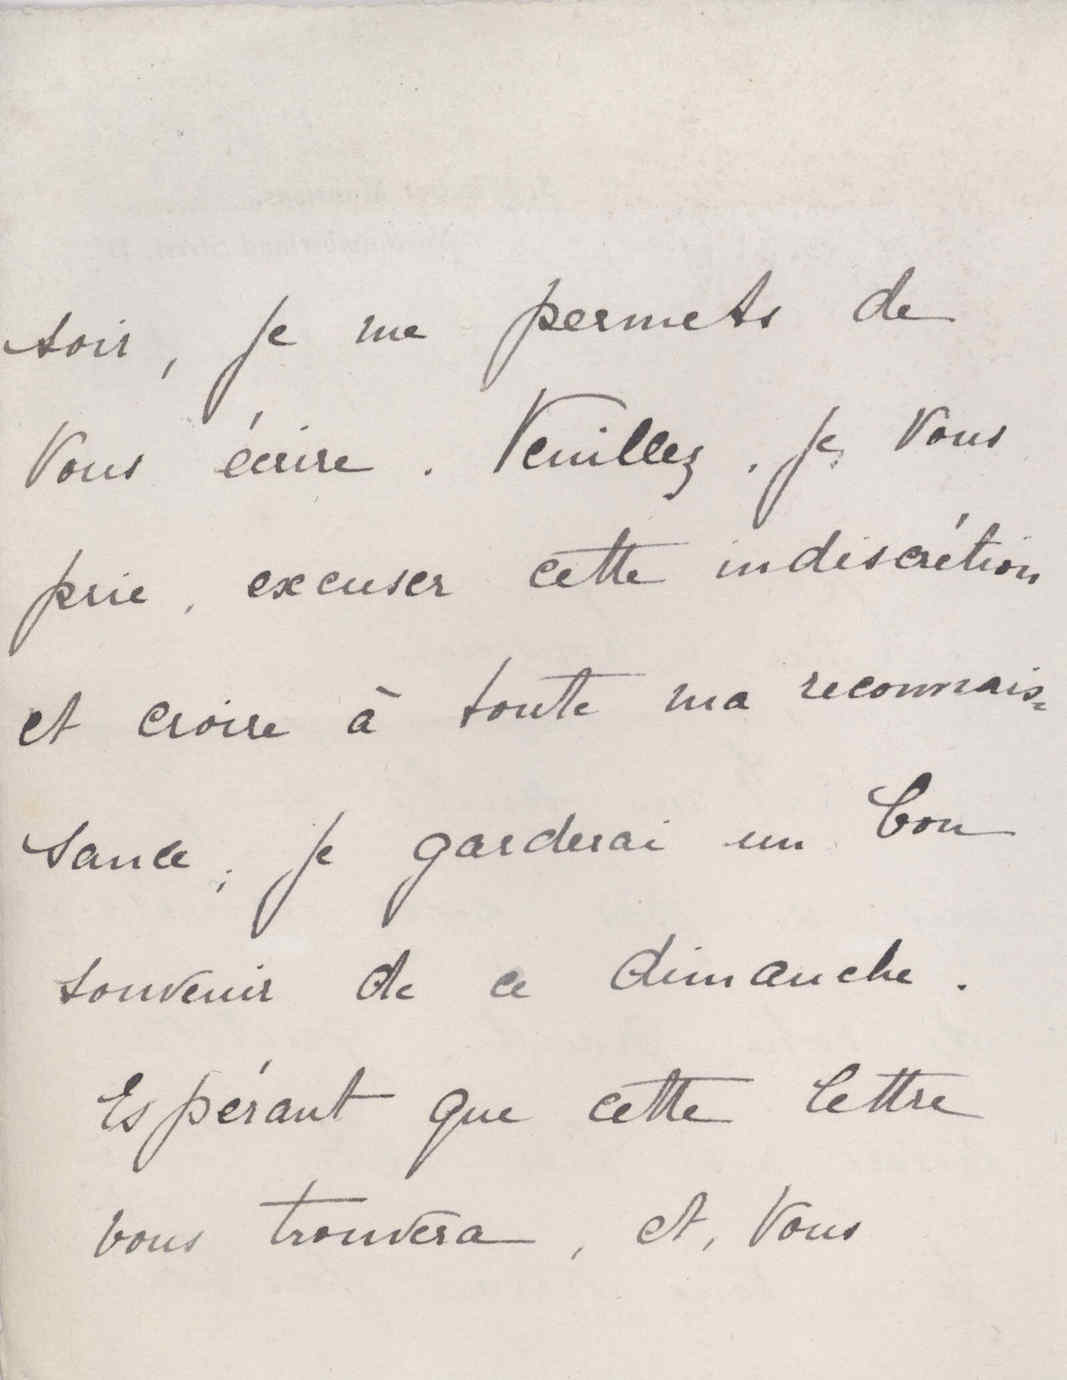 soir, je me permets de
Vous écrire. Veuillez, je Vous
prie, excuser cette indiscrétion
et croire à toute ma reconnais=
sance; je garderai un bon
souvenir de ce dimanche.
Espérant que cette lettre
vous trouvera, et, Vous